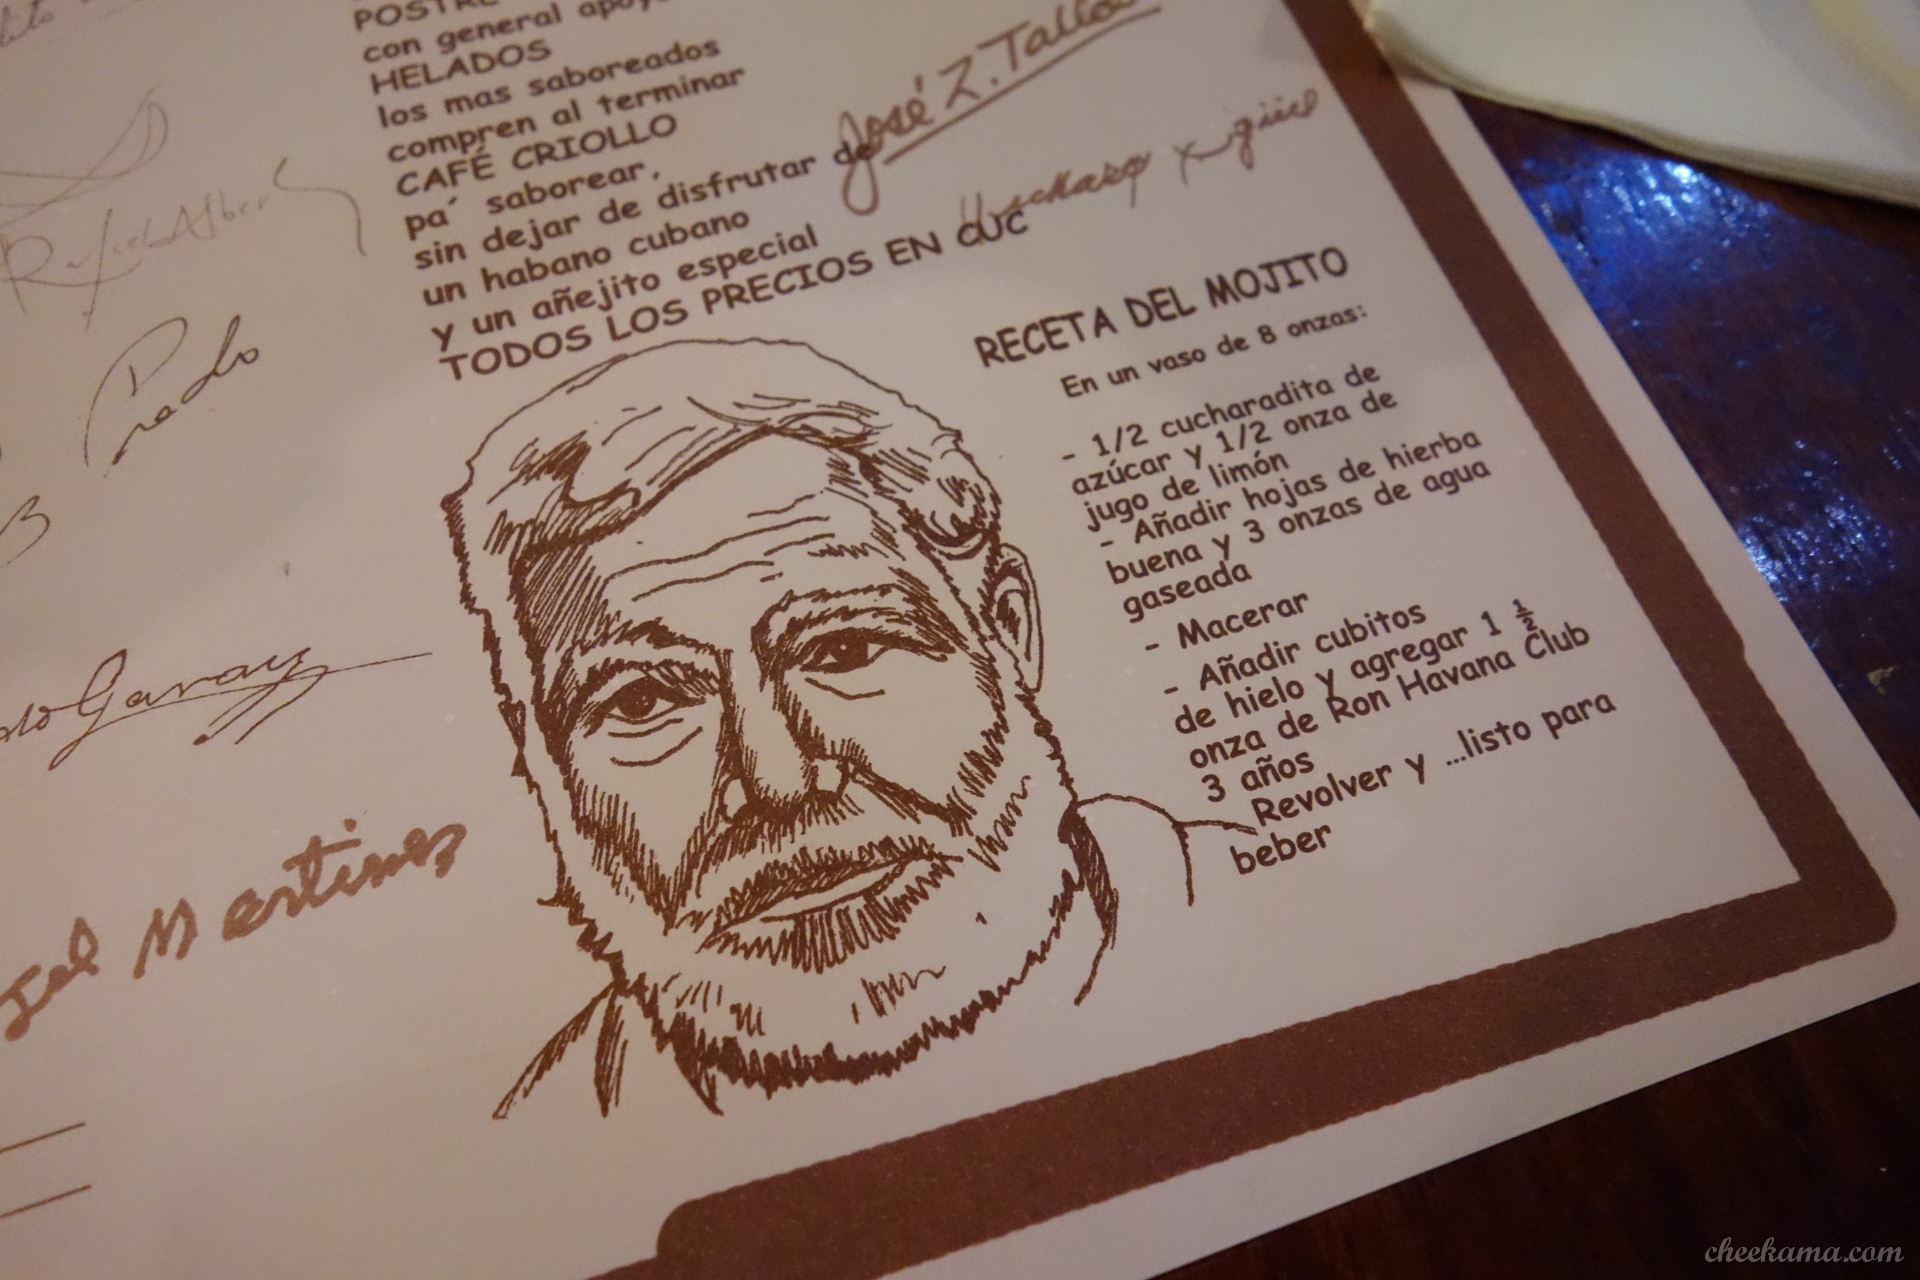 POSTRE
con general apoy
HELADOS
los mas saboreados
compren al terminar
CAFÉ CRIOLLO
pa´ saborear,
sin dejar de disfrutar de
un habano cubano
y un añejito especial
TODOS LOS PRECIOS EN CUC
José Z. Tallet
Rafael Alber
Prado
Garay
Martinez
RECETA DEL MOJITO
En un vaso de 8 onzas:
- 1/2 cucharadita de
azúcar y 1/2 onza de
jugo de limón
- Añadir hojas de hierba
buena y 3 onzas de agua
gaseada
- Macerar
- Añadir cubitos
de hielo y agregar 1 ½
onza de Ron Havana Club
3 años
Revolver y ...listo para
beber
cheekama.com